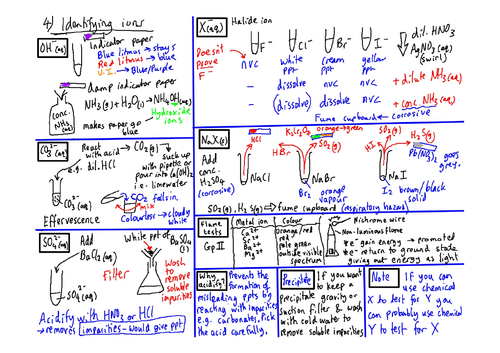 4) Identifying ions
OH⁻(aq)
Indicator paper
Blue litmus → stays
Red litmus → blue
U.I. → Blue/Purple
damp indicator paper
NH₃(g) + H₂O(l) → NH₄OH(aq)
conc. NH₃
makes paper go blue
Hydroxide ions
CO₃²⁻(aq)
React with acid → CO₂(g)
e.g. dil. HCl
suck up with pipette or pour into Ca(OH)₂
i.e. limewater
CO₃²⁻(aq)
CO₂ falls in,
mix
Colourless → cloudy white
Effervescence
SO₄²⁻(aq)
Add
BaCl₂(aq)
SO₄²⁻(aq)
White ppt of BaSO₄(s)
Filter
Wash to remove soluble impurities
Acidify with HNO₃ or HCl
→ removes impurities - would give ppt
X⁻(aq)
Halide ion
F⁻ Cl⁻ Br⁻ I⁻
dil. HNO₃
AgNO₃(aq)
(swirl)
Doesn't prove F⁻
nvc white ppt cream ppt yellow ppt
- dissolve nvc nvc
+ dilute NH₃(aq)
- (dissolve) dissolve nvc
+ conc. NH₃(aq)
Fume cupboard ← corrosive
NaX(s)
Add conc. H₂SO₄
(corrosive)
HCl
NaCl
K₂Cr₂O₇ orange → green
HBr
SO₂(g)
NaBr
Br₂ orange vapour
SO₂(g)
HI
H₂S(g)
Pb(NO₃)₂ goes grey.
NaI
I₂ brown/black solid
SO₂(g), H₂S(g) → fume cupboard (respiratory hazard)
Flame tests
Gp II
Metal ion Colour
Ca²⁺ Orange/red
Sr²⁺ red
Ba²⁺ pale green
Mg²⁺ outside visible spectrum
Nichrome wire
Non-luminous flame
*e⁻ gain energy → promoted
*e⁻ return to ground state giving out energy as light
Why acidify?
Prevents the formation of misleading ppts by reacting with impurities e.g. carbonates, pick the acid carefully.
Precipitate
If you want to keep a precipitate gravity or suction filter & wash with cold water to remove soluble impurities
Note
If you can use chemical X to test for Y you can probably use chemical Y to test for X